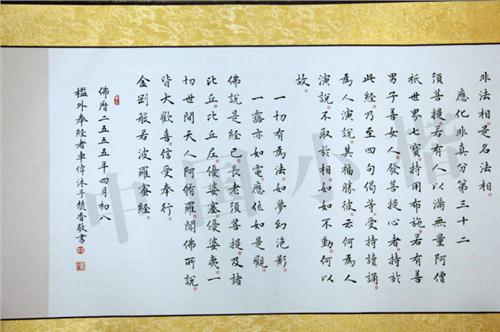 非法相是名法相
應化非真分第三十二
須菩提若有人以滿無量阿僧
祇世界七寶持用布施若有善
男子善女人發菩提心者持於
此經乃至四句偈等受持讀誦
為人演說其福勝彼云何為人
演說不取於相如如不動何以
故
一切有為法如夢幻泡影
一露亦如電應作如是觀
佛說是經已長老須菩提及諸
比丘比丘尼優婆塞優婆夷一
切世間天人阿脩羅聞佛所說
皆大歡喜信受奉行
金剛般若波羅蜜經
佛曆二五五五年四月初八
檻外奉經者車偉沐手焚香敬書
中国小楷